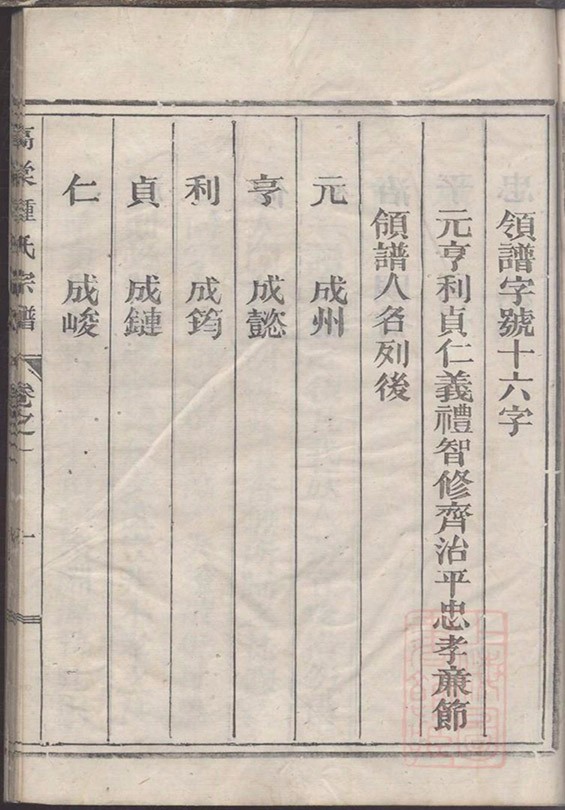 領譜字號十六字
元亨利貞仁義禮智修齊治平忠孝亷節
領譜人名列後
元 成州
亨 成懿
利 成筠
貞 成鏈
仁 成峻
氏宗譜
卷之